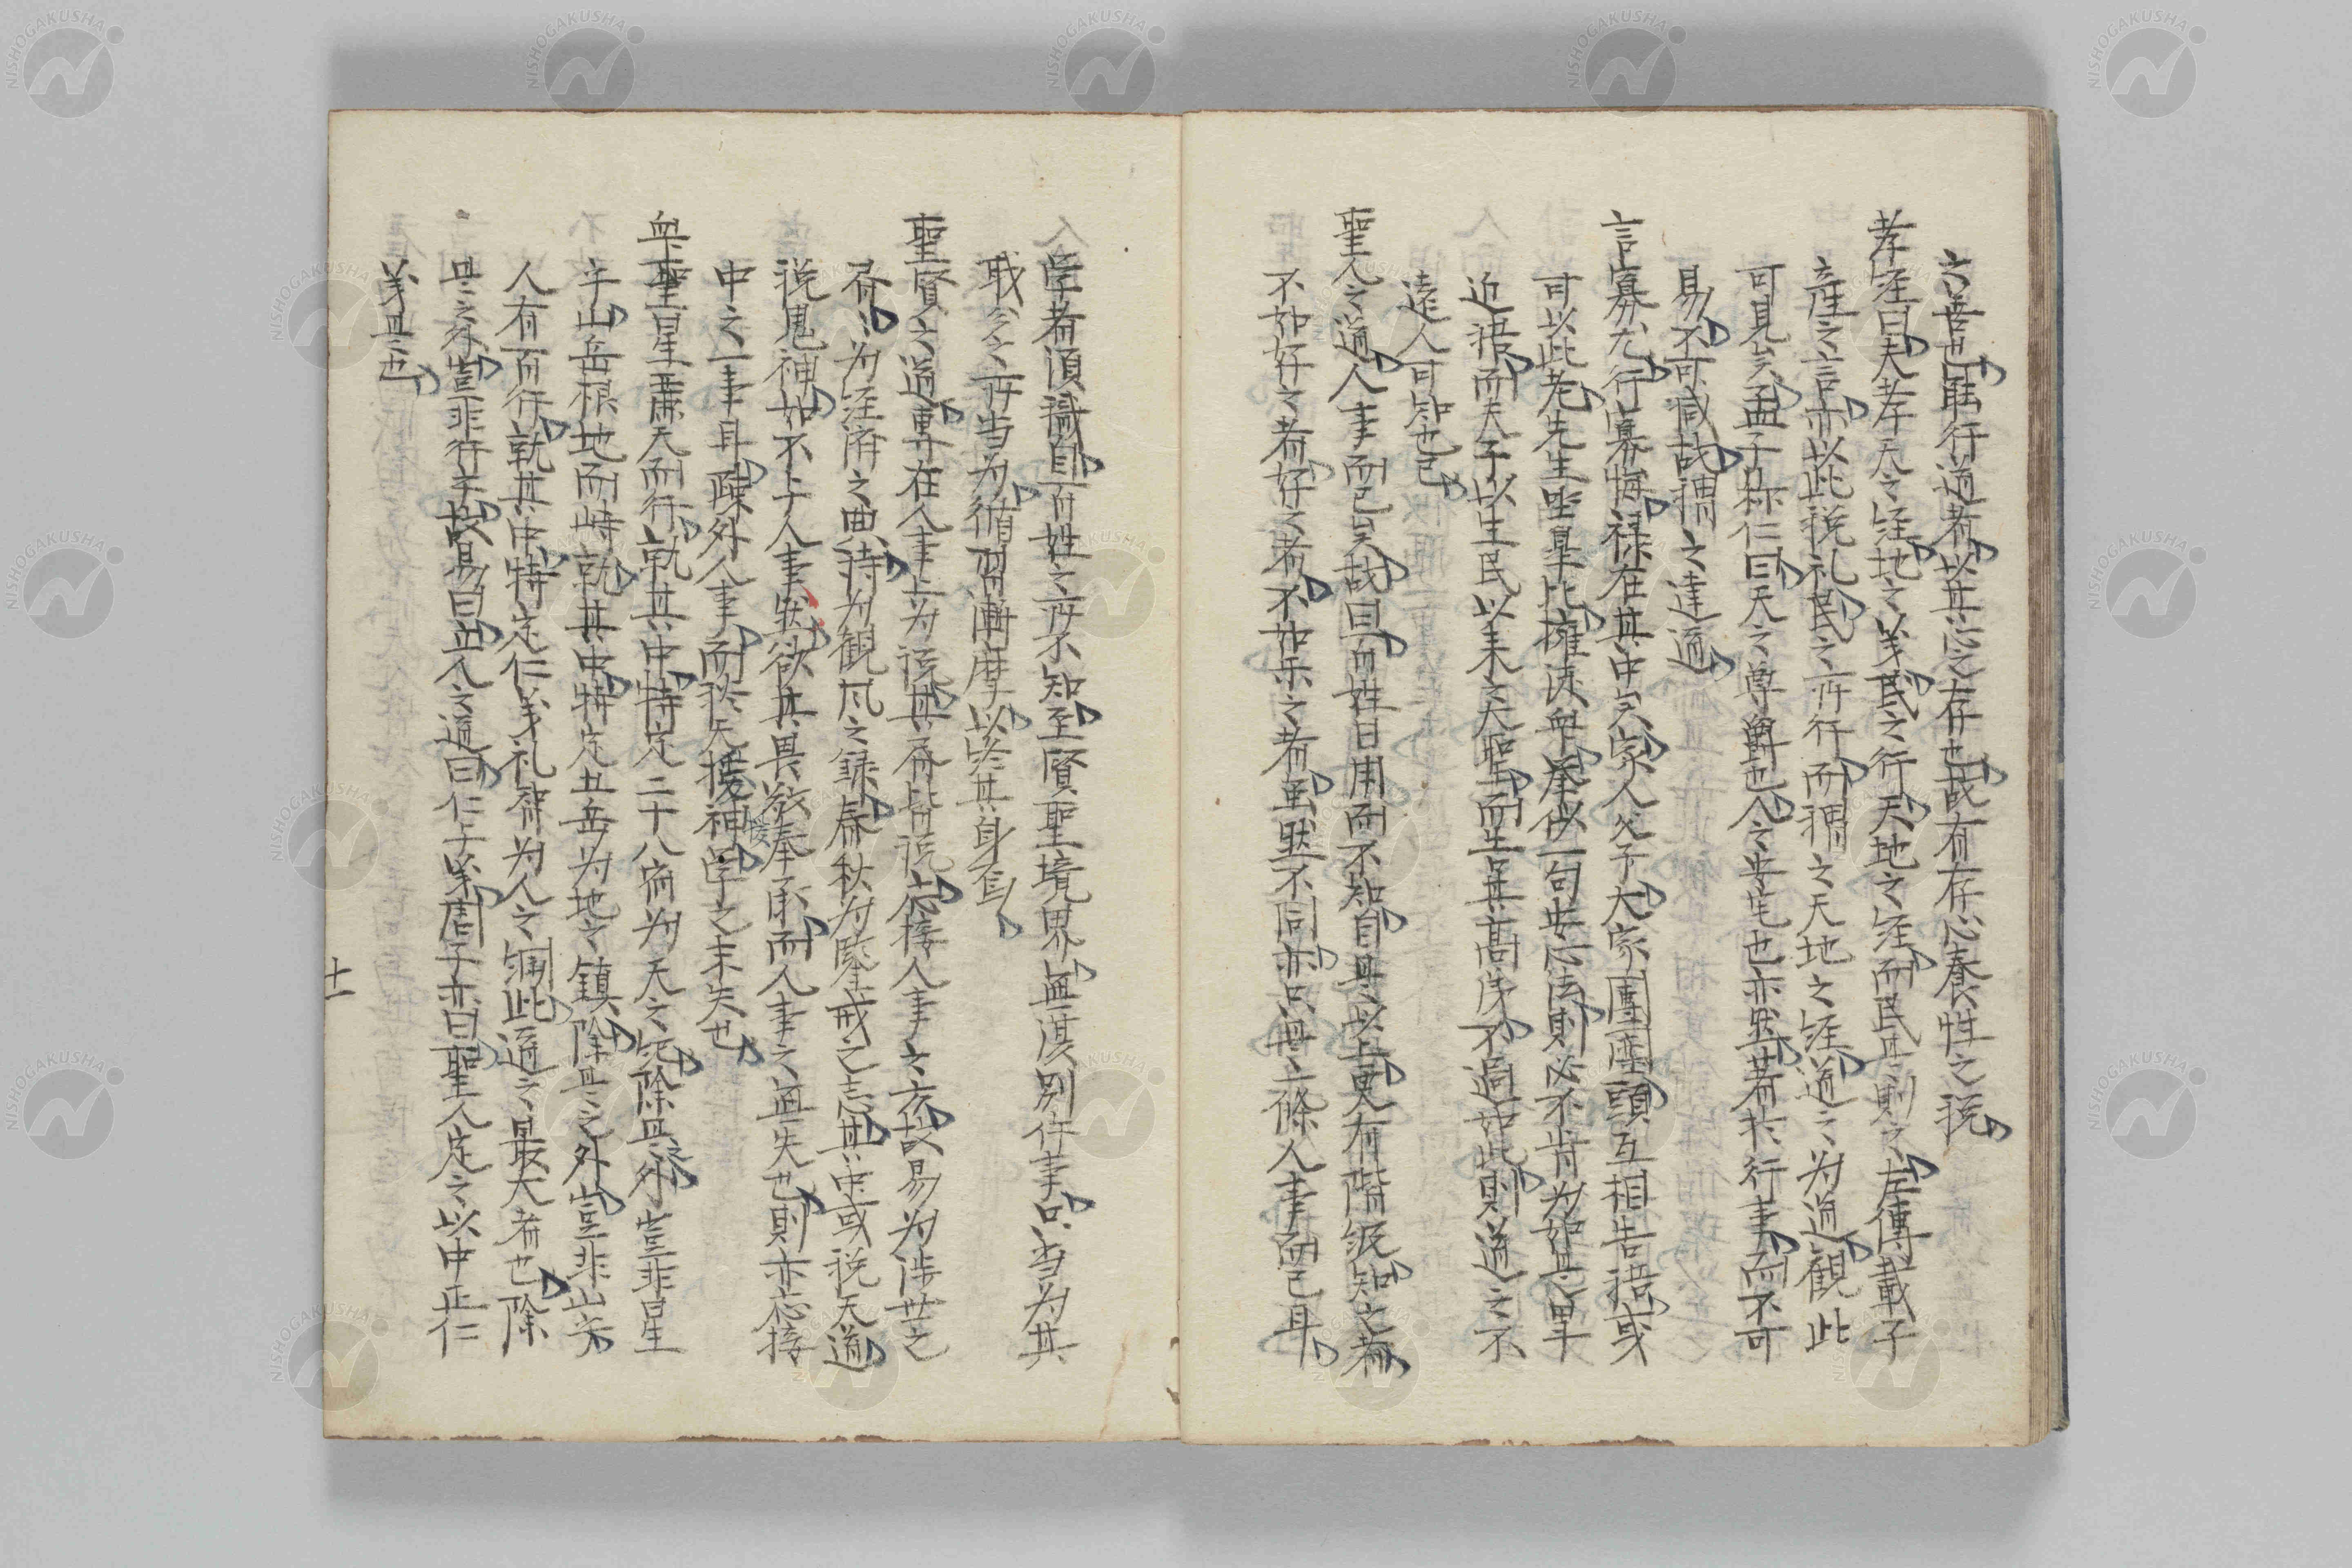 六善也耻行道者以其心之存也故有存心養性之說
孝經曰夫孝天之經地之義民之行天地之經而民是則之左傳載子
産之言亦以此說礼民之所行而謂之天地之經道之為道觀此
可見矣孟子称仁曰天之尊爵也人之安宅也亦然著於行事而不可
易不可減故謂之達道
言寡尤行寡悔禄在其中矣家人父子大家團圞頭互相告語或
可以此老先生坐皐比擁
近語而夫子以生民以来之大聖而坐其高
不過如此則道之不
遠人可知也已
聖人之道人事而已矣哉曰百姓日用而不知自是以上更有階級知之者
不如好之者好之者不如乐之者虽然不同亦只是之條人事而已耳
学者須識自百姓之所不知至賢聖境界無復別件事只当為其
職分之所当為循習漸摩以終其身
聖賢之道専在人事上為説其書皆説応接人事之方故易為渉世之
書書為経済之典詩為観風之録春秋為鑒戒之志其中或説天道
説鬼神如不与人事然欲其畏敬奉承而人事之無失也則亦応接
中之一事耳疎外人事而談天援神学之末失也
衆星麗天而行就其中特定二十八宿為天之紀除是之外豈非星
乎山岳根地而峙就其中特定五岳為地之鎮除是之外豈非山矣
人有百行就其中特定仁義礼智為人之綱此道之最大者也除
是之外豈非行乎故易曰立人之道曰仁与義周子亦曰聖人定之以中正仁
義是也
十一
NISHOGAKUSHA